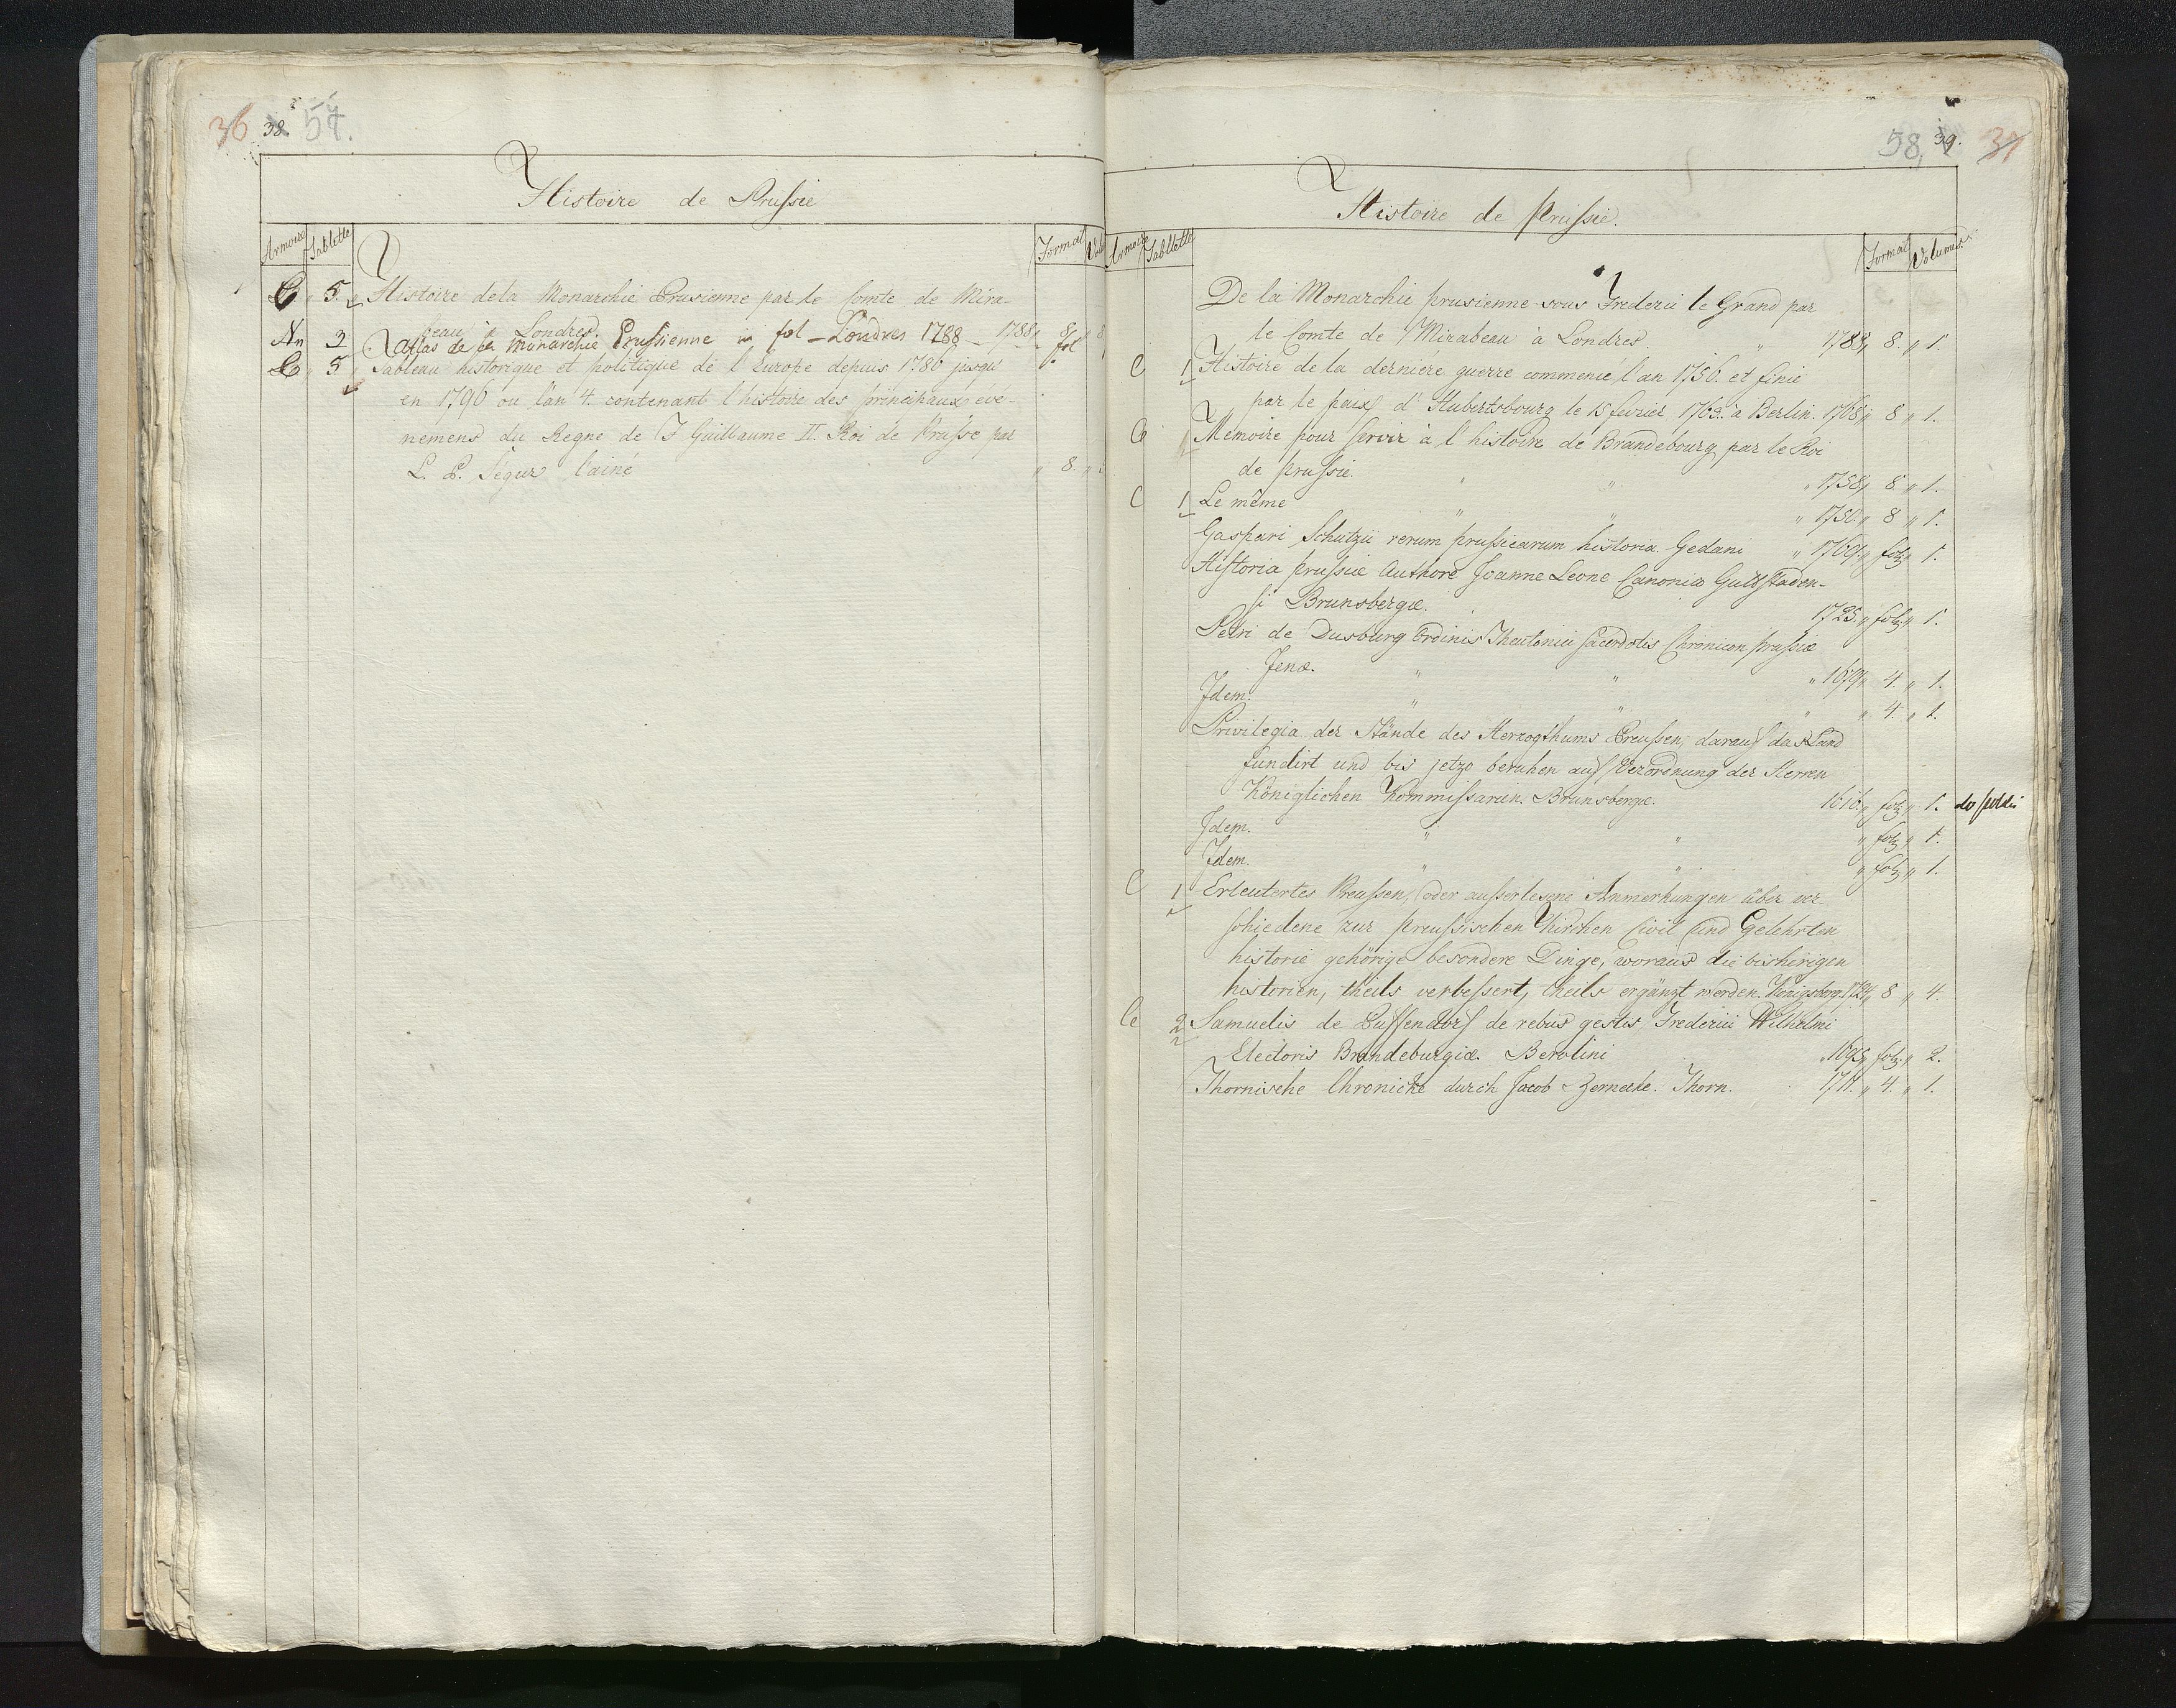 36 38. 57.
Histoire de Prussie
Armoire Tablette Format
C 5. Histoire de la Monarchie Prusienne par le Comte de Mira-
beau à Londres. 1788 8
Nn 2 Atlas de la Monarchie Prussienne in fol - Londres 1788 fol
C 5 Tableau historique et politique de l'Europe depuis 1786 jusqu'
en 1796 ou l'an 4. contenant l'histoire des principaux eve-
nemens du Regne de F Guillaume II. Roi de Prusse par
L. P. Ségur l'ainé " 8. "
58, 39. 37
Histoire de Prussie.
Armoire Tablette Format Volumes
De la Monarchie prusienne sous Frederic le Grand par
le Comte de Mirabeau à Londres. " 1788 " 8. " 1.
C 1 Histoire de la derniére guerre commencé l'an 1756. et finie
par le paix d'Hubertsbourg le 15 fevrier 1763. à Berlin. 1768 " 8 " 1.
C Mémoire pour servir à l'histoire de Brandebourg par le Roi
de prussie. " " " 1758 " 8 " 1.
C 1 Le même " " " 1750. " 8 " 1.
Gaspari Schutzii rerum prussicarum historia. Gedani " 1769 " fol " 1.
Historia prussiæ Authore Joanne Leone Canonico Guttstaden-
si Brunsbergæ. 1725. " fol " 1.
Petri de Dusburg Ordinis Theutonici sacerdotis Chronicon prussiæ
Jenæ. " " " 1679 " 4. " 1.
Idem. " " " " 4. " 1.
Privilegia der Stände des Herzogthums Preussen, darauf das Land
fundirt und bis jetzo beruhen auf Verordnung der Herren
Königlichen Kommissarien. Brunsbergæ. 1616. " fol " 1.
Idem. " " " fol " 1.
Idem. " " " fol " 1.
C 1 Erleutertes Preussen, oder ausserlesene Anmerkungen über ver-
schiedene zur preussischen Kirchen Civil und Gelehrten
historie gehörige besondere Dinge, woraus die bisherigen
historien, theils verbessert, theils ergänzt werden. Königsberg. 1724 " 8 " 4.
C 2 Samuelis de Puffendorf de rebus gestis Frederici Wilhelmi
Electoris Brandeburgiæ. Berolini " 1695 " fol. " 2.
Thornische Chronicke durch Jacob Zernecke. Thorn. 1711. " 4. " 1.